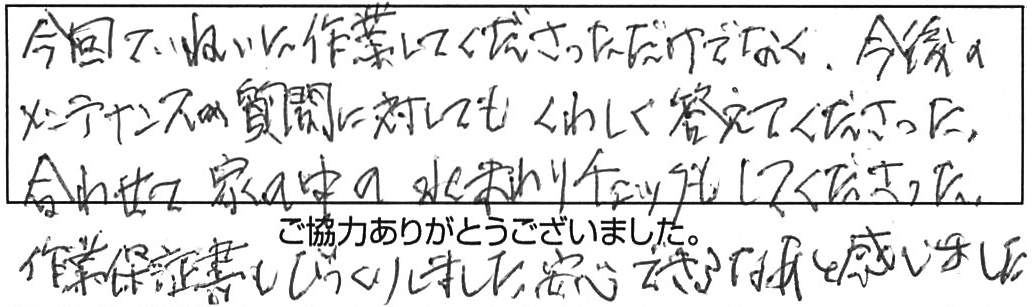 今回ていねいに作業してくださっただけでなく、今後の
メンテナンスの質問に対してもくわしく答えてくださった。
合わせて家の中の水まわりチェックもしてくださった。
ご協力ありがとうございました。
作業保証書もびっくりしました。安心できるなあと感じました